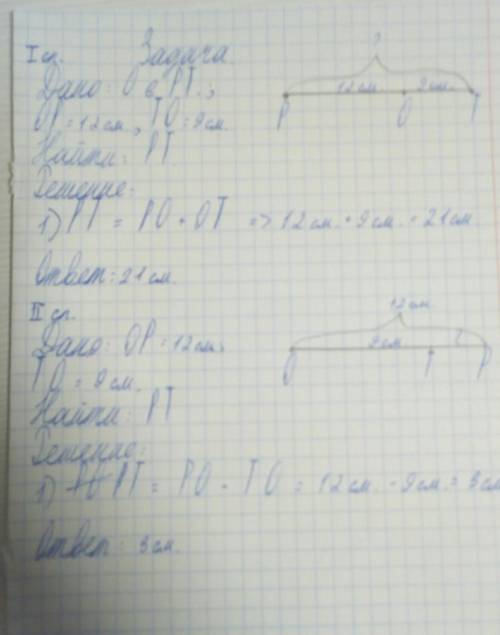 I сп. Задача
Дано: O ∈ PT.;
OP = 12 см., TO = 9 см.
Найти: PT
Решение:
1) PT = PO + OT => 12 см. + 9 см. = 21 см.
Ответ: 21 см.
?
12 см 9 см.
P O T
II сп.
Дано: OP = 12 см.,
TO = 9 см.
Найти: PT
Решение:
1) PT = PO - TO = 12 см. - 9 см. = 3 см
Ответ: 3 см.
12 см
9 см ?
O T P